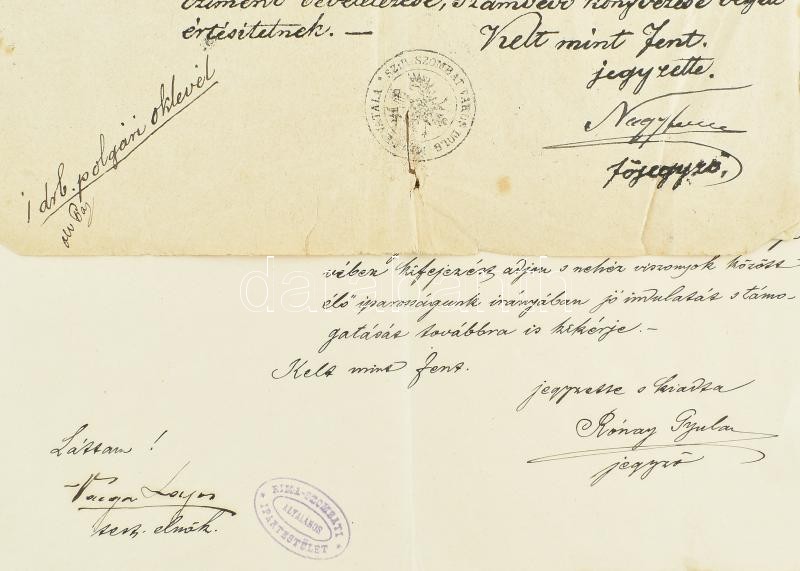 értesitetnek. —
Kelt mint fent.
jegyzette.
Nagy
főjegyző.
1 drb. polgári oklevél
SZOMBAT VÁROS
vében" kifejezést adjon s nehéz viszonyok között
élő" iparosságunk irányában jó indulatát s támo-
gatását továbbra is kikérje. —
Kelt mint fent.
jegyzette s kiadta
Rónay Gyula
jegyző
Láttam !
Varga Lajos
test. elnök.
RIMA-SZOMBATI
ÁLTALÁNOS
IPARTESTÜLET
darabanth.com